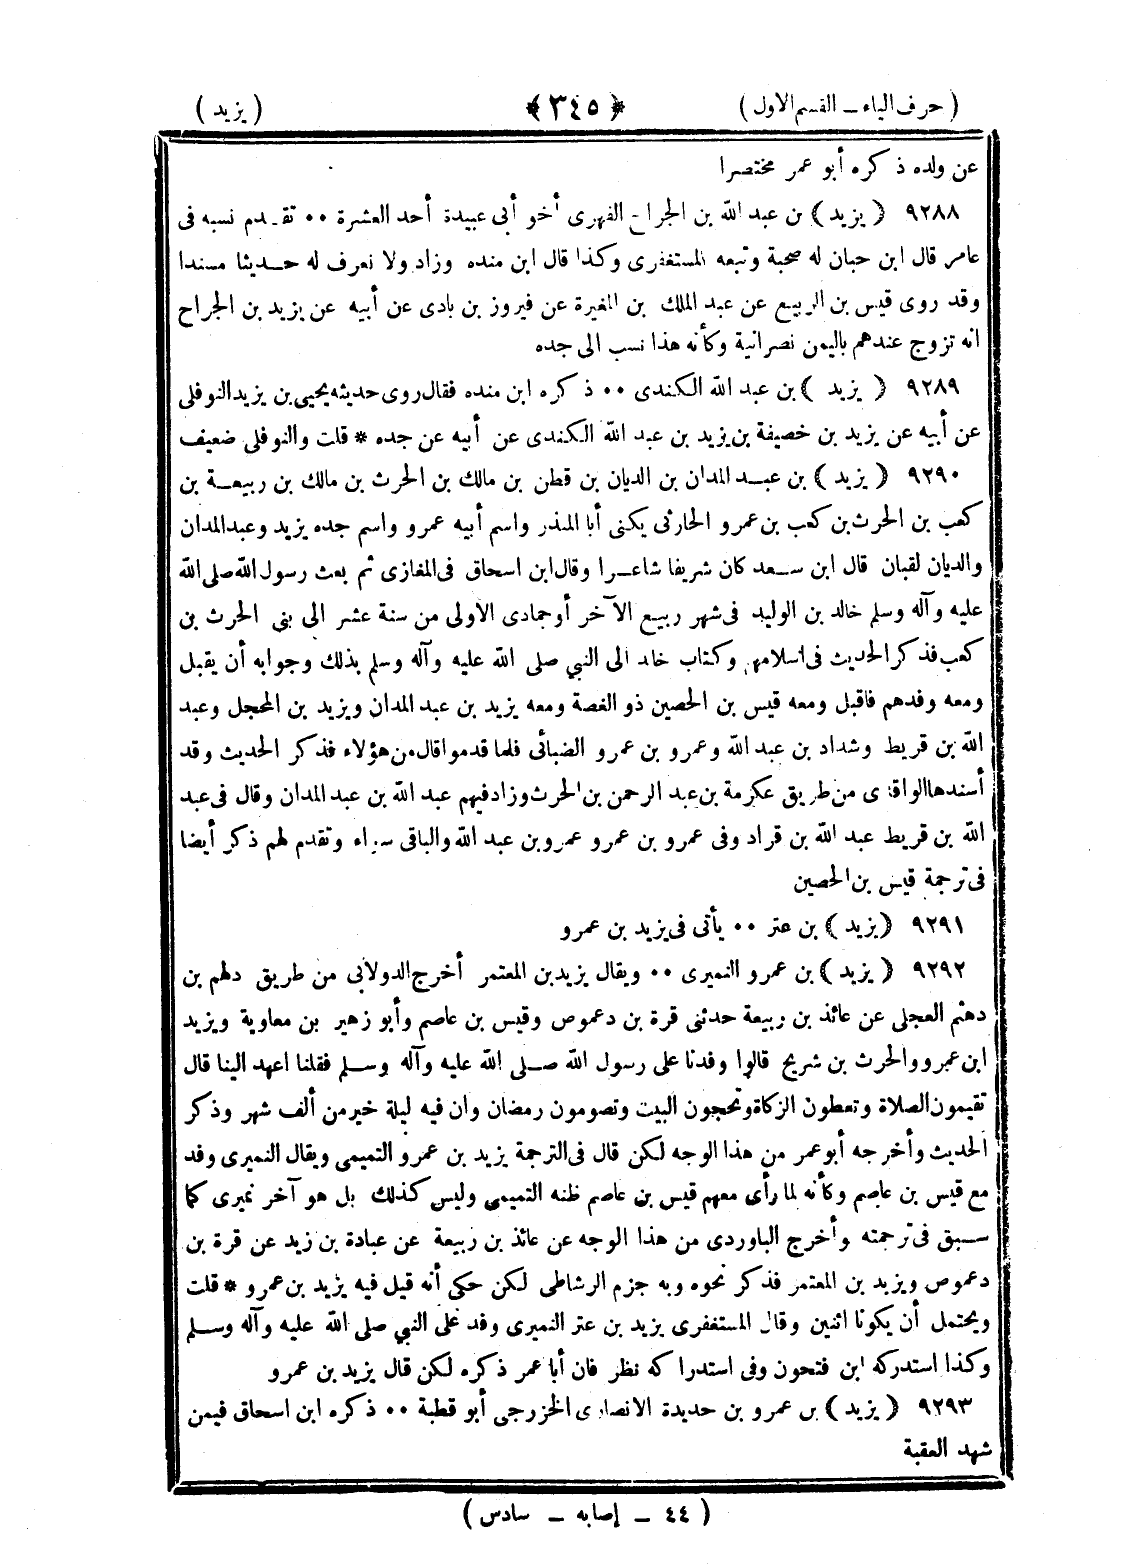 ( حرف الياء – القسم الاول ) ﴿ ٣٤٥ ﴾ ( يزيد )
عن ولده ذكره أبو عمر مختصرا
٩٢٨٨ ﴿ يزيد ﴾ بن عبد الله بن الجراح الفهرى أخو أبى عبيدة أحد العشرة ٠٠ تقدم نسبه فى
عامر قال ابن حبان له صحبة وتبعه المستغفرى وكذا قال ابن منده وزاد ولا نعرف له حديثا مسندا
وقد روى قيس بن الربيع عن عبد الملك بن المغيرة عن فيروز بن بادى عن أبيه عن يزيد بن الجراح
انه تزوج عندهم باليمن نصرانية وكأنه هذا نسب الى جده
٩٢٨٩ ﴿ يزيد ﴾ بن عبد الله الكندى ٠٠ ذكره ابن منده فقال روى حديثه يحيى بن يزيد النوفلى
عن أبيه عن يزيد بن خصيفة بن يزيد بن عبد الله الكندى عن أبيه عن جده * قلت والنوفلى ضعيف
٩٢٩٠ ﴿ يزيد ﴾ بن عبد المدان بن الديان بن قطن بن مالك بن الحرث بن مالك بن ربيعة بن
كعب بن الحرث بن كعب بن عمرو الحارثى يكنى أبا المنذر واسم أبيه عمرو واسم جده يزيد وعبد المدان
والديان لقبان قال ابن سعد كان شريفا شاعرا وقال ابن اسحاق فى المغازى ثم بعث رسول الله صلى الله
عليه وآله وسلم خالد بن الوليد فى شهر ربيع الآخر أو جمادى الاولى من سنة عشر الى بنى الحرث بن
كعب فذكر الحديث فى اسلامهم وكتاب خالد الى النبي صلى الله عليه وآله وسلم بذلك وجوابه أن يقبل
ومعه وفدهم فاقبل ومعه قيس بن الحصين ذو الغصة ومعه يزيد بن عبد المدان ويزيد بن المحجل وعبد
الله بن قريط وشداد بن عبد الله وعمرو بن عمرو الضبائى فلما قدموا قال من هؤلاء فذكر الحديث وقد
أسندها الواقدى من طريق عكرمة بن عبد الرحمن بن الحرث وزاد فيهم عبد الله بن عبد المدان وقال فى عبد
الله بن قريط عبد الله بن قراد وفى عمرو بن عمرو عمرو بن عبد الله والباقى سواء وتقدم لهم ذكر أيضا
فى ترجمة قيس بن الحصين
٩٢٩١ ﴿ يزيد ﴾ بن عتر ٠٠ يأتى فى يزيد بن عمرو
٩٢٩٢ ﴿ يزيد ﴾ بن عمرو النميرى ٠٠ ويقال يزيد بن المعتمر أخرج الدولابى من طريق دلهم بن
دهثم العجلى عن عائذ بن ربيعة حدثنى قرة بن دعموص وقيس بن عاصم وأبو زهير بن معاوية ويزيد
ابن عمرو والحرث بن شريح قالوا وفدنا على رسول الله صلى الله عليه وآله وسلم فقلنا اعهد الينا قال
تقيمون الصلاة وتعطون الزكاة وتحجون البيت وتصومون رمضان وان فيه ليلة خير من ألف شهر وذكر
الحديث وأخرجه أبو عمر من هذا الوجه لكن قال فى الترجمة يزيد بن عمرو التميمى ويقال النميرى وفد
مع قيس بن عاصم وكأنه لما رأى معهم قيس بن عاصم ظنه التميمى وليس كذلك بل هو آخر نميرى كما
سبق فى ترجمته وأخرج الباوردى من هذا الوجه عن عائذ بن ربيعة عن عبادة بن زيد عن قرة بن
دعموص ويزيد بن المعتمر فذكر نحوه وبه جزم الرشاطى لكن حكى أنه قيل فيه يزيد بن عمرو * قلت
ويحتمل أن يكونا اثنين وقال المستغفرى يزيد بن عتر النميرى وفد على النبي صلى الله عليه وآله وسلم
وكذا استدركه ابن فتحون وفى استدراكه نظر فان أبا عمر ذكره لكن قال يزيد بن عمرو
٩٢٩٣ ﴿ يزيد ﴾ بن عمرو بن حديدة الانصارى الخزرجى أبو قطبة ٠٠ ذكره ابن اسحاق فيمن
شهد العقبة
( ٤٤ – إصابه – سادس )